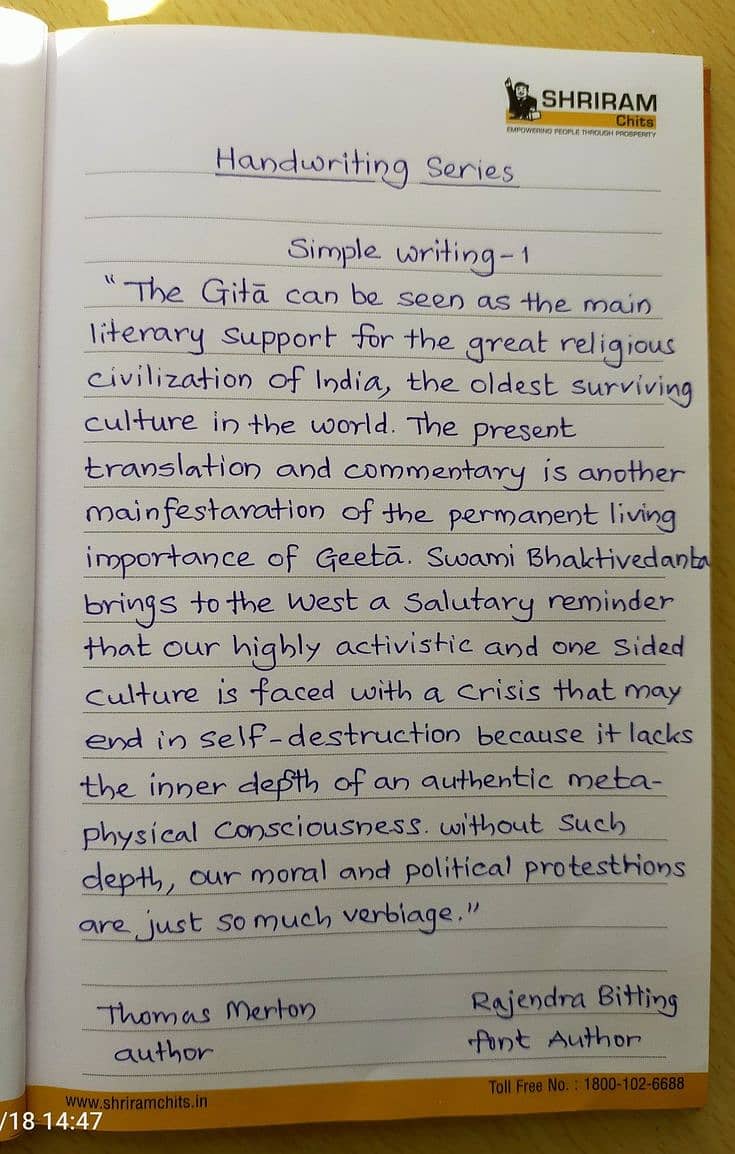 SHRIRAM
Chits
EMPOWERING PEOPLE THROUGH PROSPERITY
Handwriting Series
Simple writing-1
"The Gitā can be seen as the main
literary support for the great religious
civilization of India, the oldest surviving
culture in the world. The present
translation and commentary is another
mainfestaration of the permanent living
importance of Geetā. Swami Bhaktivedanta
brings to the West a Salutary reminder
that our highly activistic and one sided
culture is faced with a crisis that may
end in self-destruction because it lacks
the inner depth of an authentic meta-
physical Consciousness. without such
depth, our moral and political protesthions
are just so much verbiage."
Thomas Merton
author
Rajendra Bitting
font Author
www.shriramchits.in
Toll Free No. : 1800-102-6688
/18 14:47